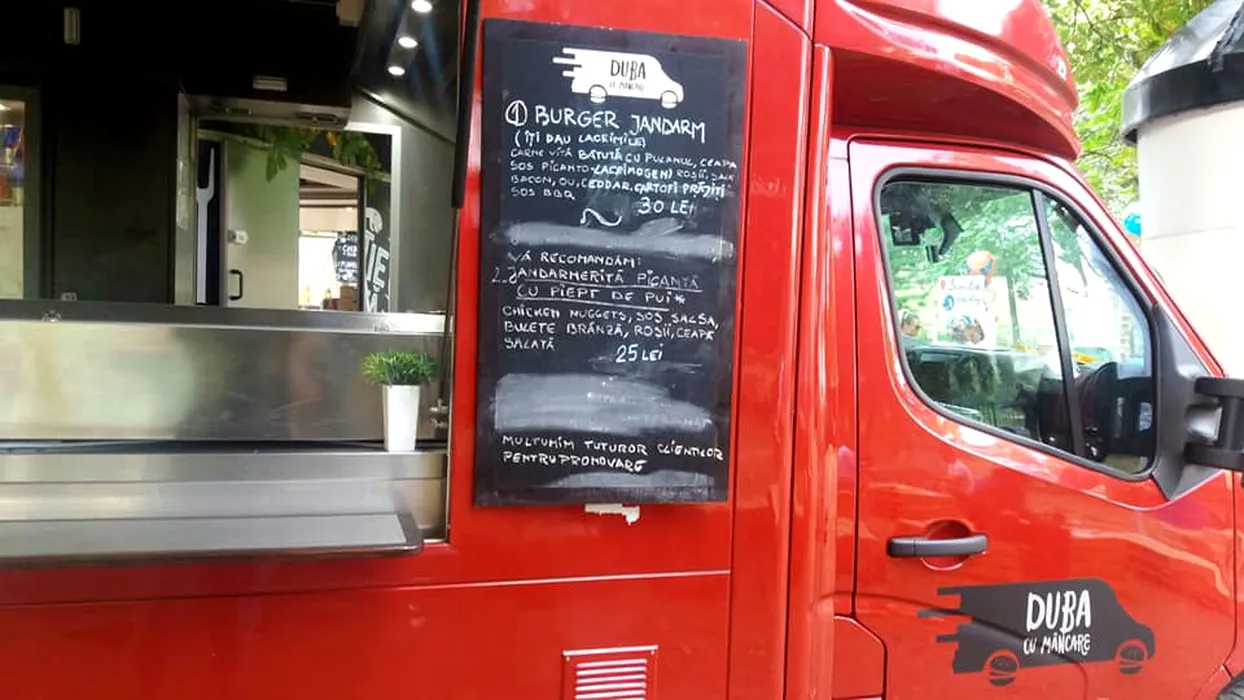 DUBA
CU MÂNCARE
① BURGER JANDARM
(ÎȚI DAU LACRIMILE)
CARNE VITĂ BĂTUTĂ CU PULANUL, CEAPA
SOS PICANTO-LACRIMOGEN, ROȘII,
BACON, OU, CEDDAR, CARTOFI PRĂJIȚI
SOS BBQ
30 LEI
VĂ RECOMANDĂM:
2. JANDARMERIȚĂ PICANTĂ
CU PIEPT DE PUI*
CHICKEN NUGGETS, SOS SALSA,
BULETE BRÂNZĂ, ROȘII, CEAPĂ
SALATĂ
25 LEI
MULTUMIM TUTUROR CLIENTILOR
PENTRU PROMOVARE
DUBA
CU MÂNCARE